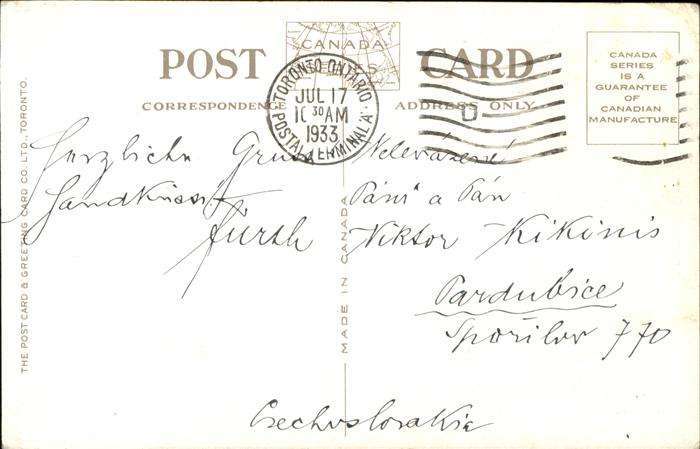 POST CARD
CANADA
SERIES
CORRESPONDENCE
ADDRESS ONLY
TORONTO ONTARIO
JUL 17
10 30 AM
1933
POSTAL TERMINAL A
D
CANADA
SERIES
IS A
GUARANTEE
OF
CANADIAN
MANUFACTURE
Herzliche Gruss
Handküsse
Fürth
Velevážení
Páni a Pán
Viktor Kikinis
Pardubice
Spořilov 770
Czechoslovakia
MADE IN CANADA
THE POST CARD & GREETING CARD CO. LTD., TORONTO.